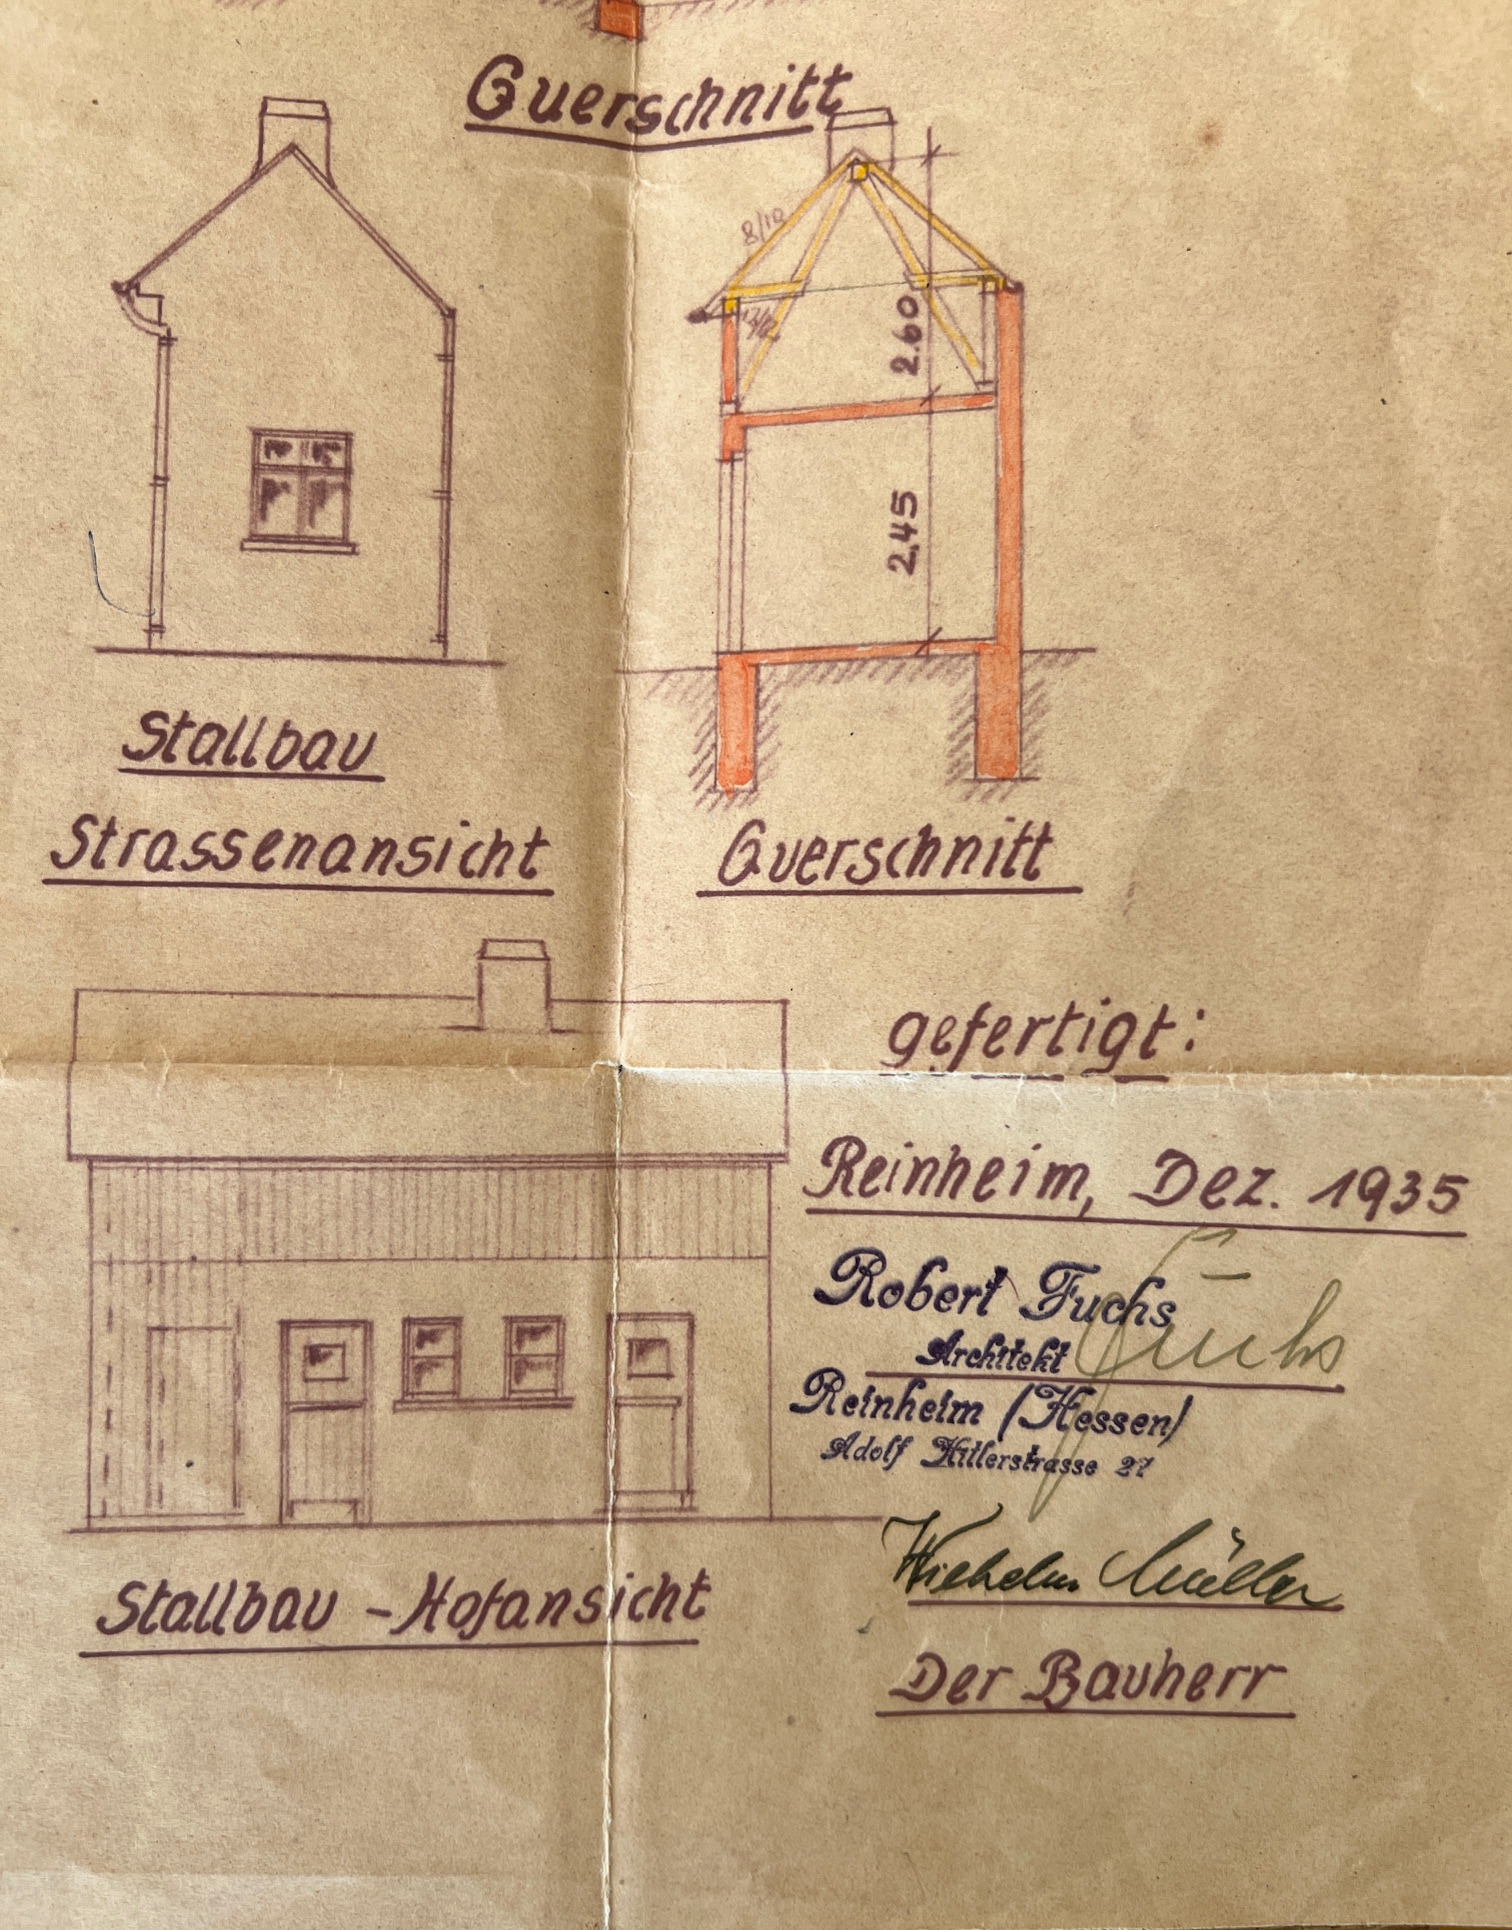 Querschnitt
8/10
2.60
2,45
Stallbau
Strassenansicht
Querschnitt
gefertigt:
Reinheim, Dez. 1935
Robert Fuchs
Fuchs
Architekt
Reinheim (Hessen)
Adolf Hitlerstrasse 27
Wilhelm Müller
Stallbau - Hofansicht
Der Bauherr